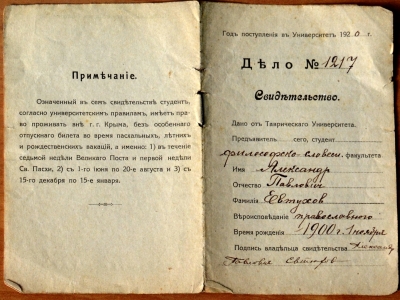 Примѣчаніе.
Означенный въ семъ свидѣтельствѣ студентъ,
согласно университетскимъ правиламъ, имѣетъ пра-
во проживать внѣ г. г. Крыма, безъ особеннаго
отпускнаго билета во время пасхальныхъ, лѣтнихъ
и рождественскихъ вакацій, а именно: 1) въ теченіе
седьмой недѣли Великаго Поста и первой недѣли
Св. Пасхи, 2) съ 1-го іюня по 20-е августа и 3) съ
15-го декабря по 15-е января.
Годъ поступленія въ Университетъ 1920 г.
Дѣло № 1217
Свидѣтельство.
Дано отъ Таврическаго Университета.
Предъявитель сего, студентъ
философско-словесн. факультета
Имя Александръ
Отчество Павловичъ
Фамилія Евтуховъ
Вѣроисповѣданіе православнаго
Время рожденія 1900 г. 1 ноября
Подпись владѣльца свидѣтельства Александръ
Евтуховъ